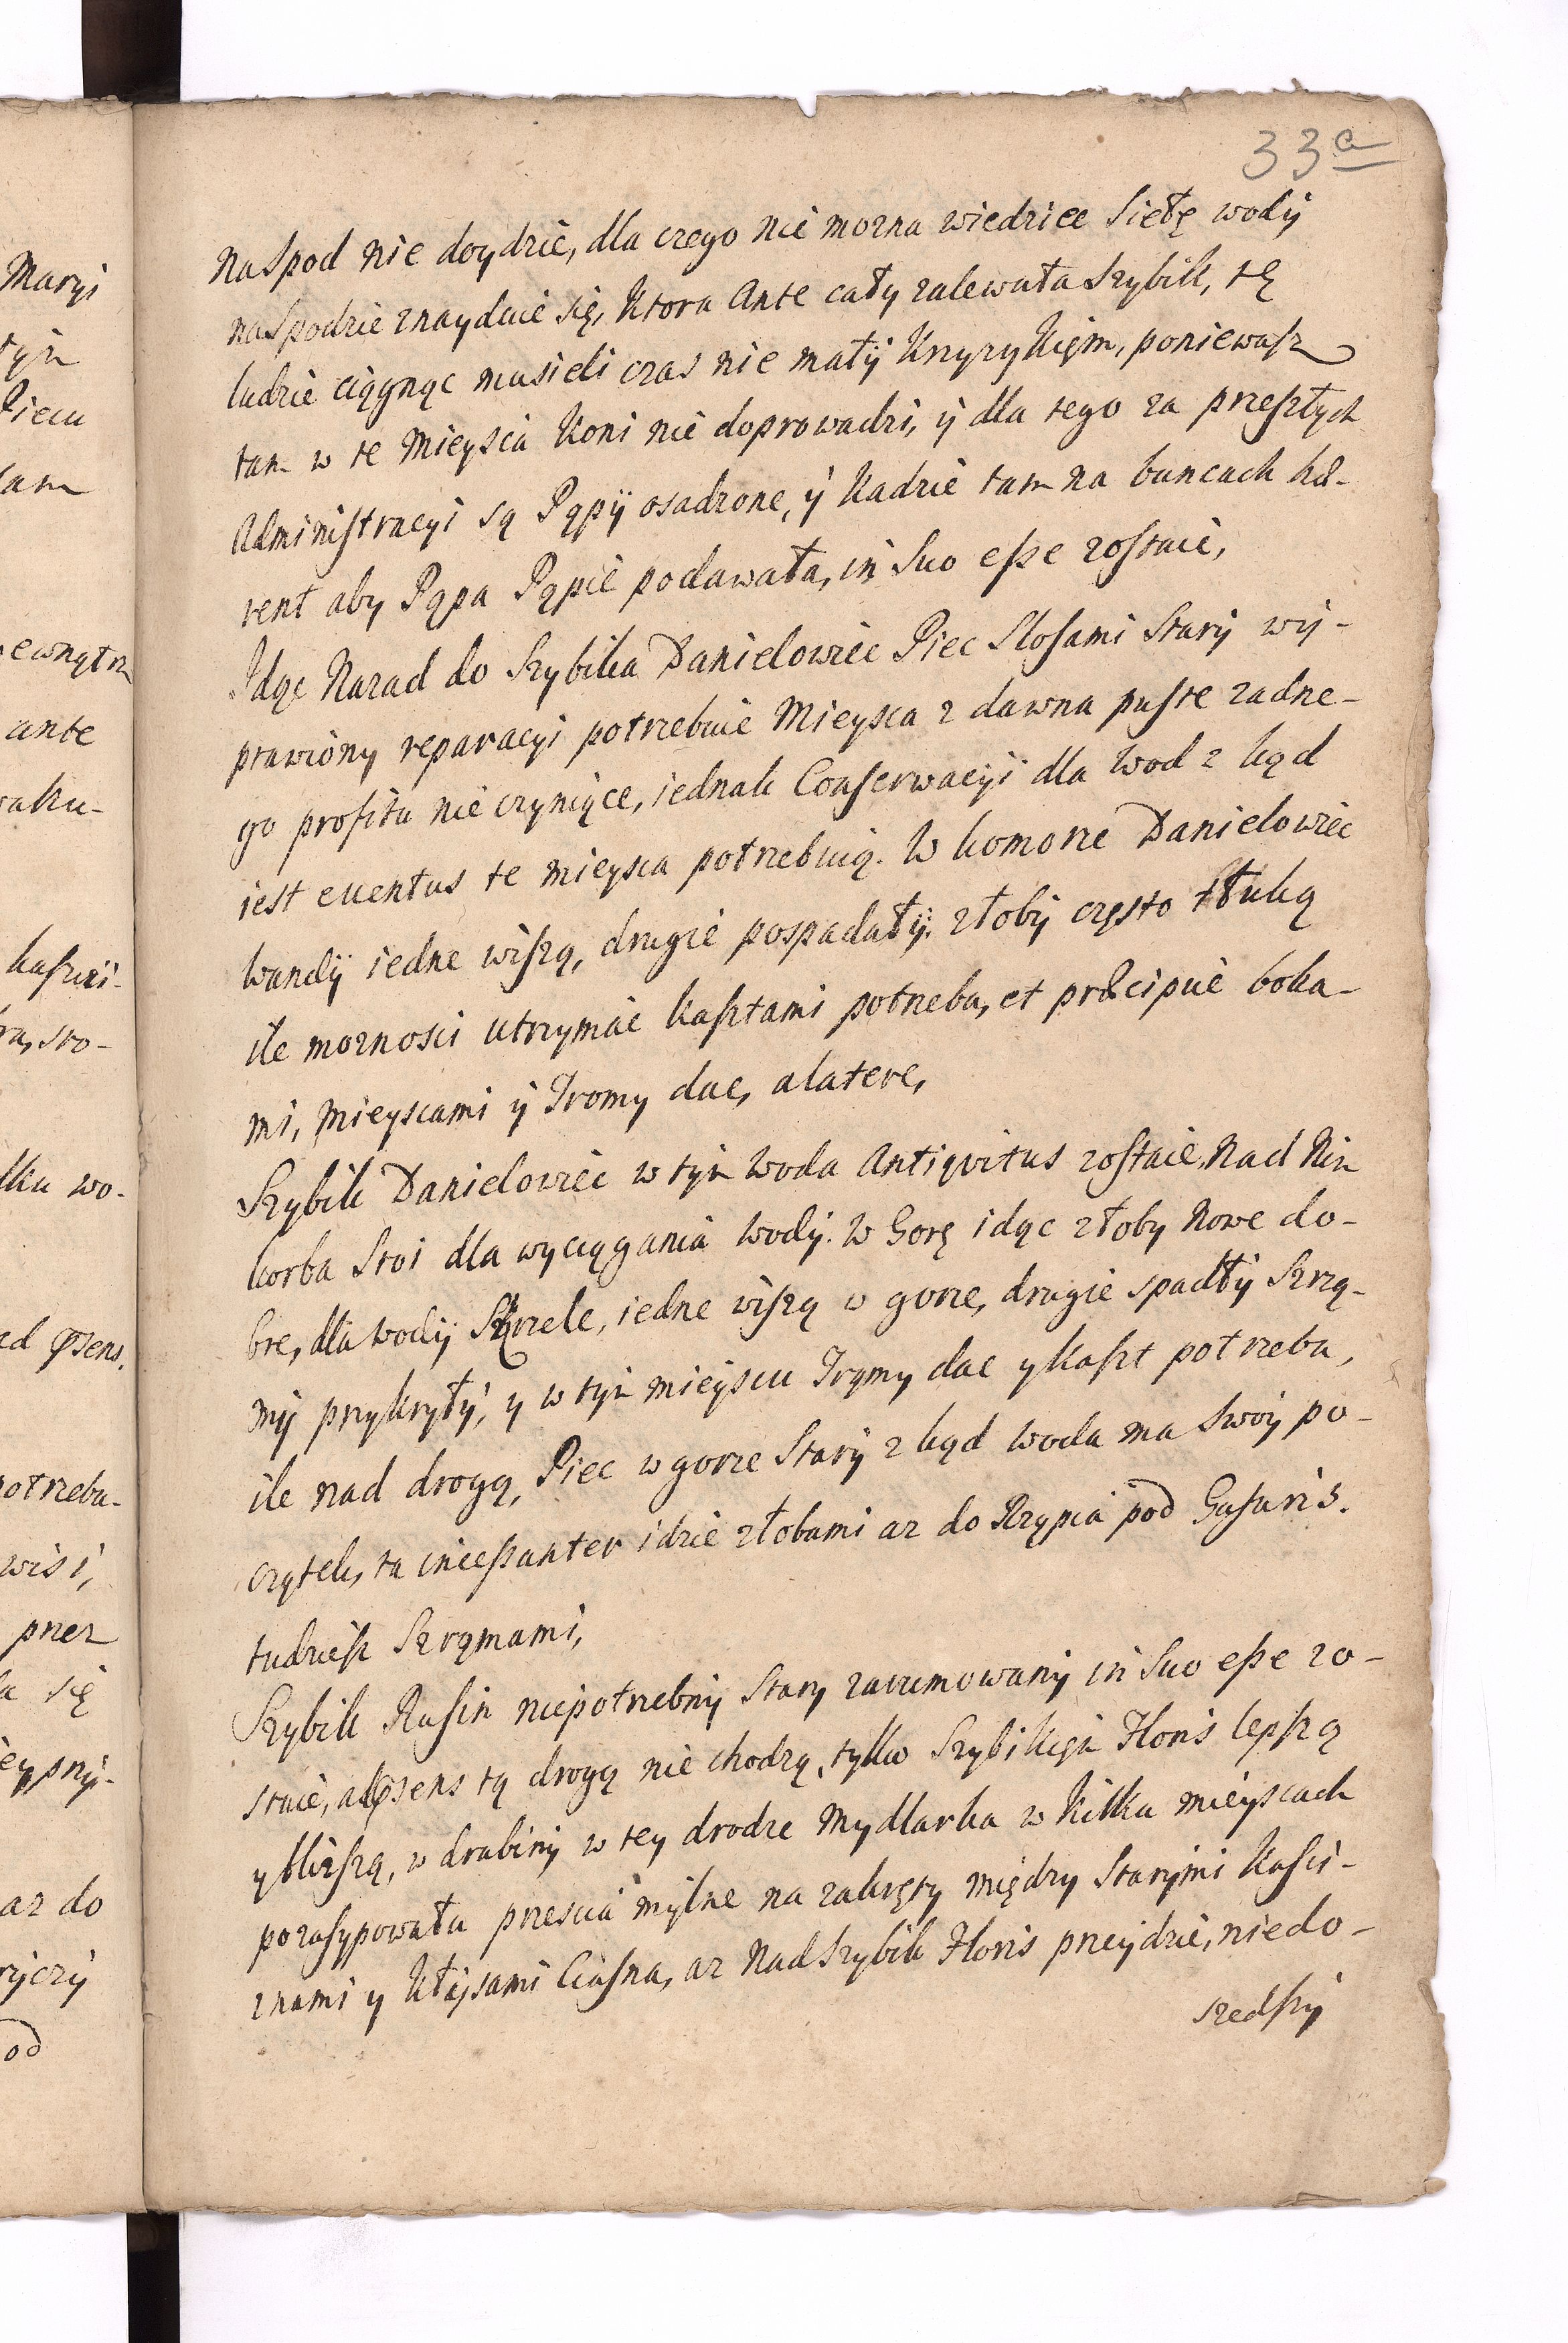 33a
naspod nie doydzie, dla czego nie mozna wiedziec Siełę wody
naspodzie znayduie się, Ktora Ante cały zalewała Szybik, tę
ludzie ciągnąc musieli czas nie mały Krzyzykięm, poniewasz
tam w te Mieysca Koni nie doprowadzi, y dla tego za przeszłych
Administracyi są Pąpy osadzone, y Kadzie tam na buncach hæ-
rent aby Pąpa Pąpie podawała, in Suo esse zostaie,
Idąc Nazad do Szybika Danielowiec Piec Slosami Stary wy-
prawiony reparacyi potrzebuie Mieysca z dawna puste zadne-
go profitu nie czyniące, iednak Conserwacyi dla Wod z kąd
iest euentus te mieysca potrzebuią. W komorze Danielowiec
Wandy iedne wiszą, drugie pospadały. złoby często tłuką
ile moznosci utrzymac Kasztami potrzeba, et præcipue boka-
mi, Mieyscami y Tromy dac, alatere,
Szybik Danielowiec w tym Woda Antiqvitus zostaie, Nad Nim
korba Stoi dla wyciągania Wody. W Gorę idąc złoby Nowe do-
bre, dla wody iedne wiszą w gorze, drugie spadły Szrzą-
my przykryły, y w tym mieyscu Trąmy dac y Kaszt potrzeba,
ile nad drogą, Piec w gorze Stary z kąd woda ma Swoy po-
czątek, ta incessanter idzie złobami az do Rzypia pod Gasaris.
tudziesz Szrąmami,
Szybik Rusin niepotrzebny Stary zarumowany in Suo esse zo-
staie, tą drogą nie chodzą, tylko Szybikięm Floris lepszą
y blizszą, w drabiny w tey drodze Mydlarka w Kilku mieyscach
pozasypowała przescia mylne na zakręty między Starymi Kaści-
znami y Kłaysami Ciasna, az Nad Szybik Floris przyidzie, niedo-
szedszy
Maryi
tym
Piecu
am
ewnątrz
ante
aku-
kaszci-
ra, sto-
dku wo-
ed
potrzeba-
wisi,
przez
a się
eyprzy-
az do
ryczy
od